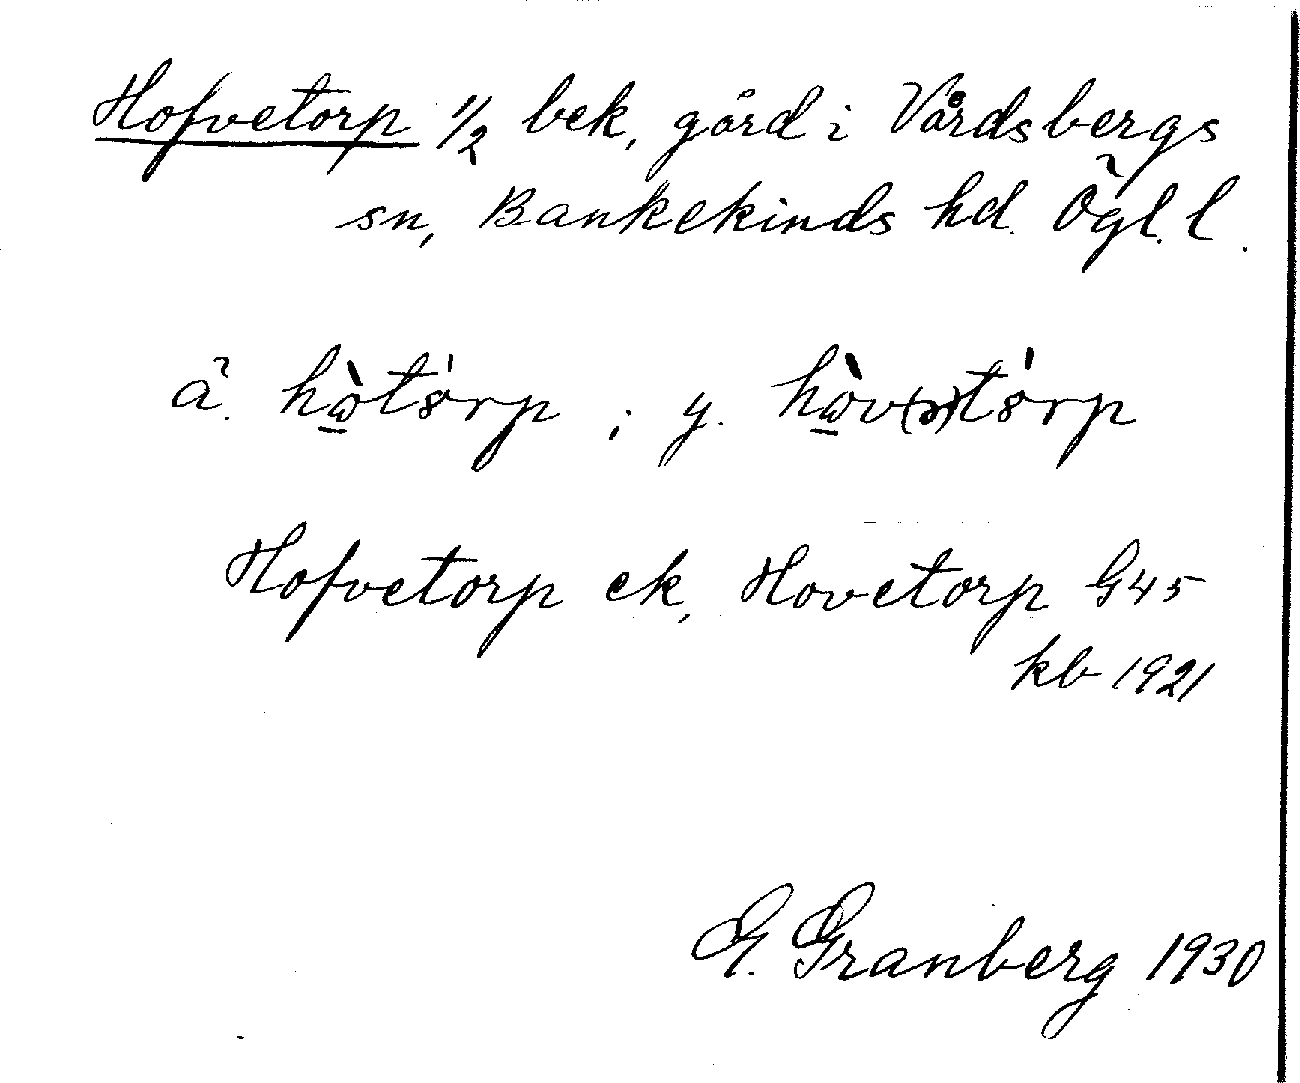 Hofvetorp 1/2 bek, gård i Vårdsbergs
sn, Bankekinds hd. Ögl. l.
ä. hὼ̲tŏ́rp ; y. hὼ̲v(ə)tŏ́rp
Hofvetorp ek, Hovetorp G45
kb 1921
G. Granberg 1930